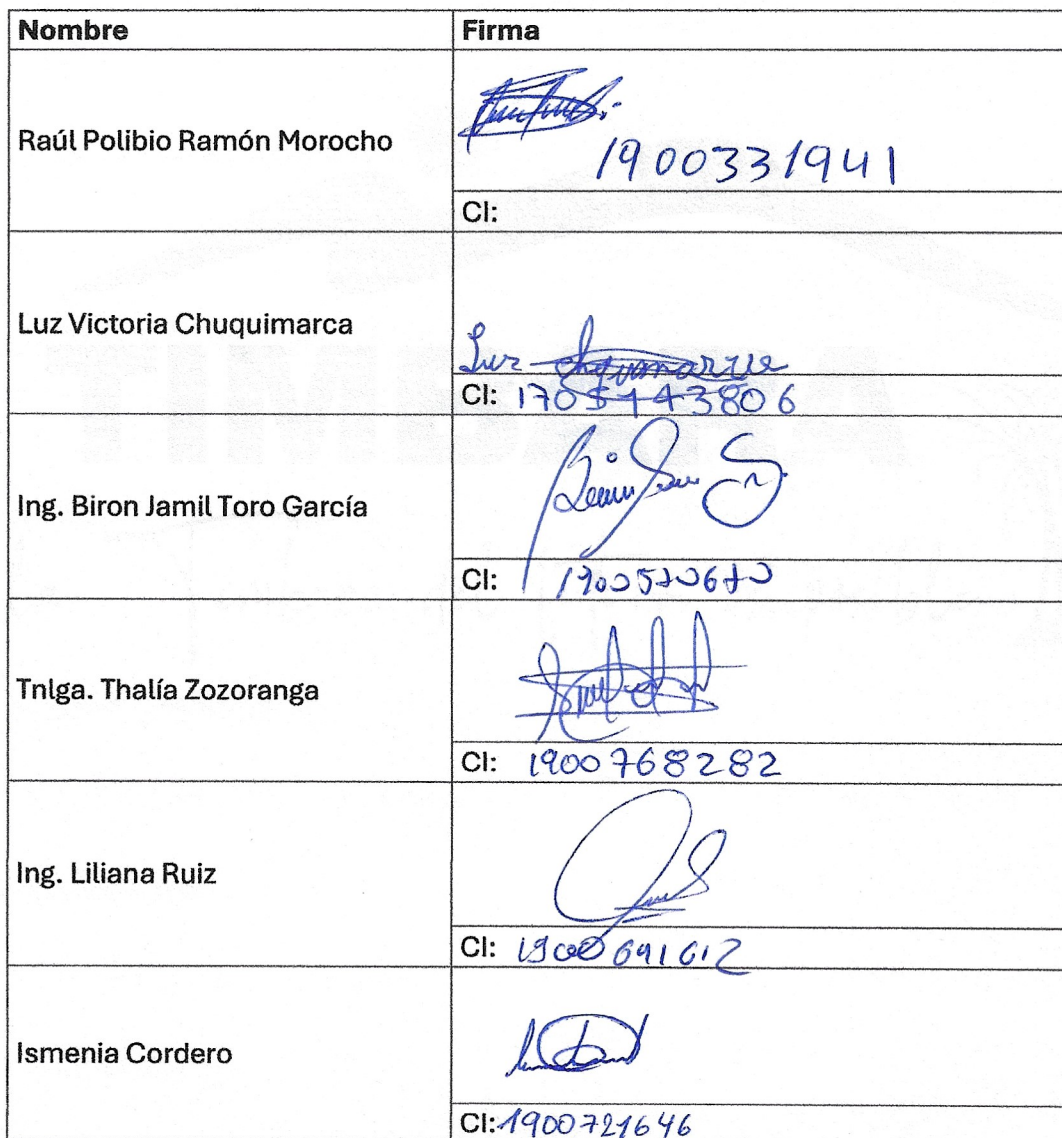 Nombre Firma
Raúl Polibio Ramón Morocho
1900331941
CI:
Luz Victoria Chuquimarca
Luz Chuquimarca
CI: 1705143806
Ing. Biron Jamil Toro García
CI: 1900570670
Tnlga. Thalía Zozoranga
CI: 1900768282
Ing. Liliana Ruiz
CI: 1900691612
Ismenia Cordero
CI: 1900721646